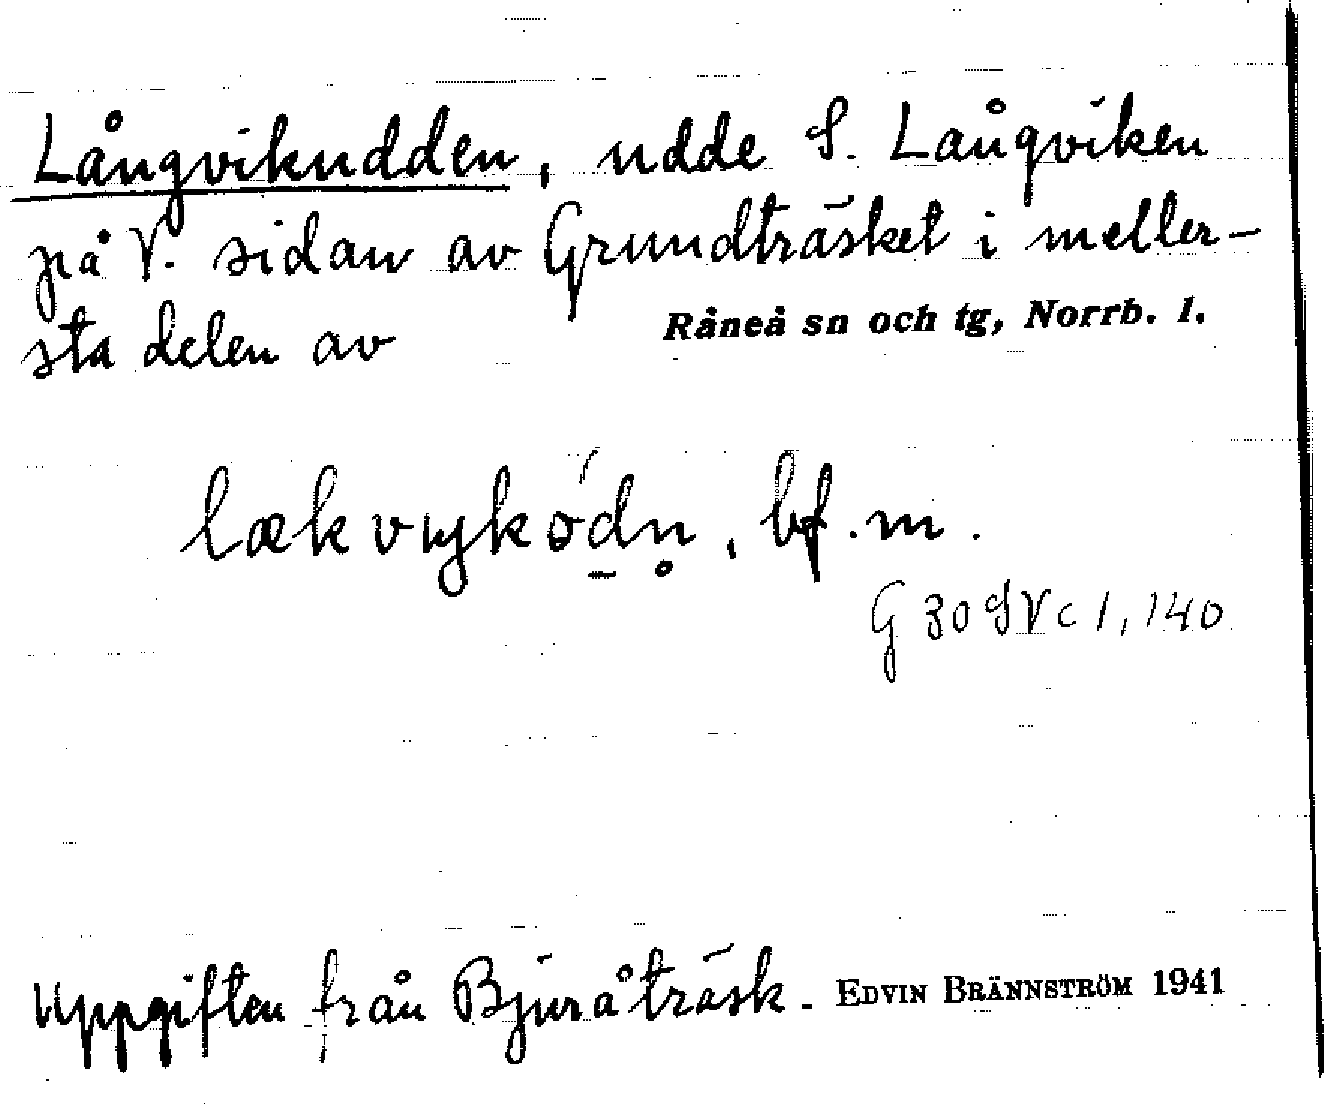 Långvikudden, udde S. Långviken
på V. sidan av Grundträsket i meller-
sta delen av Råneå sn och tg, Norrb. l.
bf. m.
G 30 SV c 1, 140
Uppgiften från Bjuråträsk. EDVIN BRÄNNSTRÖM 1941